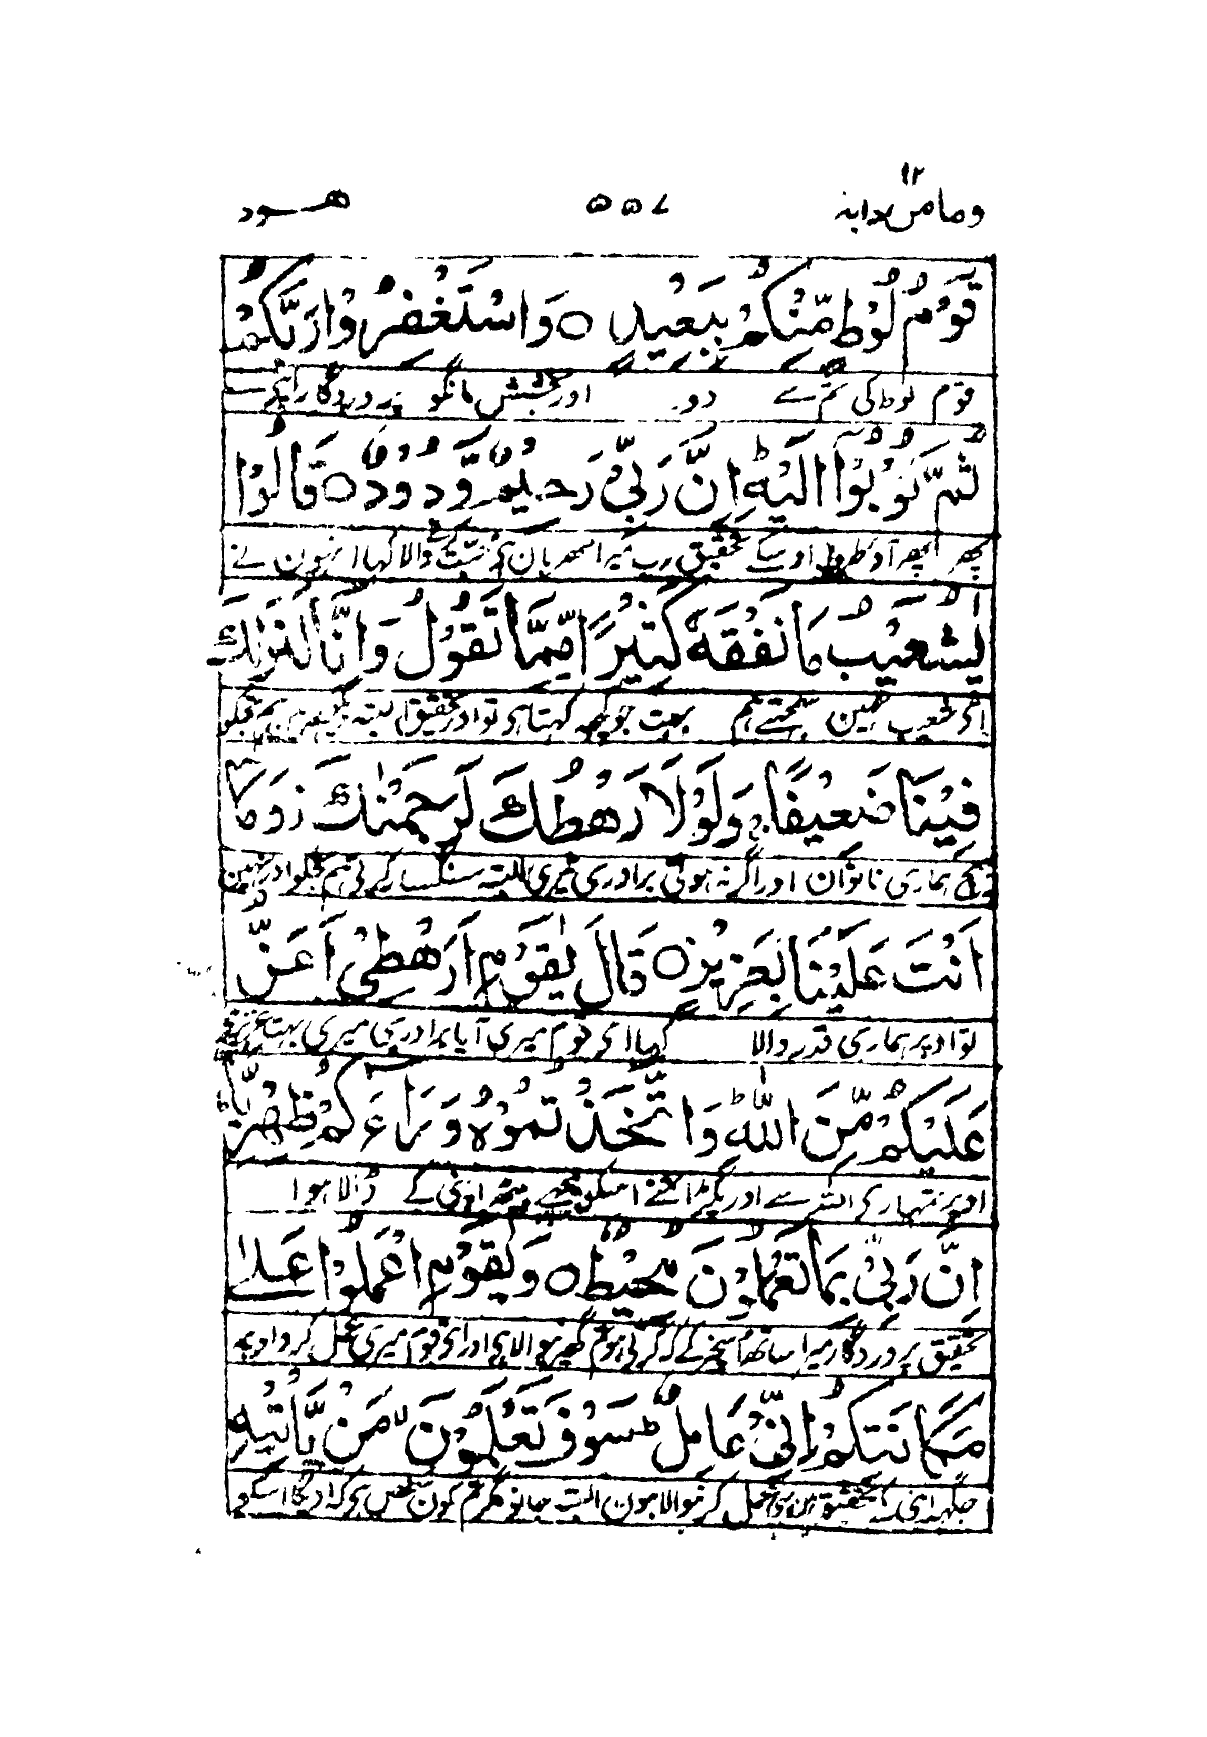 وما من دابة ١٢ ٥٥٧ هود
قَوْمُ لُوْطٍ مِّنْكُمْ بِبَعِيْدٍ ○ وَاسْتَغْفِرُوْا رَبَّكُمْ
قوم لوط کی تم سے دور اور بخشش مانگو پروردگار اپنے سے
ثُمَّ تُوْبُوْٓا اِلَيْهِ ؕ اِنَّ رَبِّيْ رَحِيْمٌ وَّدُوْدٌ ○ قَالُوْا
پھر پھر آؤ طرف اوسکے تحقیق رب میرا مہربان ہی دوست رکھنے والا کہا انہون نے
يٰشُعَيْبُ مَا نَفْقَهُ كَثِيْرًا مِّمَّا تَقُوْلُ وَاِنَّا لَنَرٰىكَ
ای شعیب نہین سمجھتے ہم بہت جو کچھ کہتا ہی تو اور تحقیق البتہ دیکھتے ہین ہم تجکو
فِيْنَا ضَعِيْفًا ۚ وَلَوْلَا رَهْطُكَ لَرَجَمْنٰكَ ز وَمَآ
بیچ ہماری ناتوان اور اگر نہ ہوتی برادری تیری البتہ سنگسار کرتی ہم تجکو اور نہین
اَنْتَ عَلَيْنَا بِعَزِيْزٍ ○ قَالَ يٰقَوْمِ اَرَهْطِيْٓ اَعَزُّ
تو اوپر ہماری قدر والا کہا ای قوم میری آیا برادری میری بہت عزیز ہے
عَلَيْكُمْ مِّنَ اللّٰهِ ؕ وَاتَّخَذْتُمُوْهُ وَرَآءَكُمْ ظِهْرِيًّا ؕ
اوپر تمہاری اللہ سے اور پکڑا تمنے اسکو پیچھے پیٹھ اپنی کے ڈالا ہوا
اِنَّ رَبِّيْ بِمَا تَعْمَلُوْنَ مُحِيْطٌ ○ وَيٰقَوْمِ اعْمَلُوْا عَلٰى
تحقیق پروردگار میرا ساتھ اس چیز کے کہ کرتی ہو تم گھیرنیوالا ہی اور ای قوم میری عمل کرو اوپر
مَكَانَتِكُمْ اِنِّيْ عَامِلٌ ؕ سَوْفَ تَعْلَمُوْنَ ۙ مَنْ يَّاْتِيْهِ
جگہہ اپنی کے تحقیق مین عمل کرنیوالا ہون البتہ جانوگے تم کون شخص ہی کہ آویگا اسکو